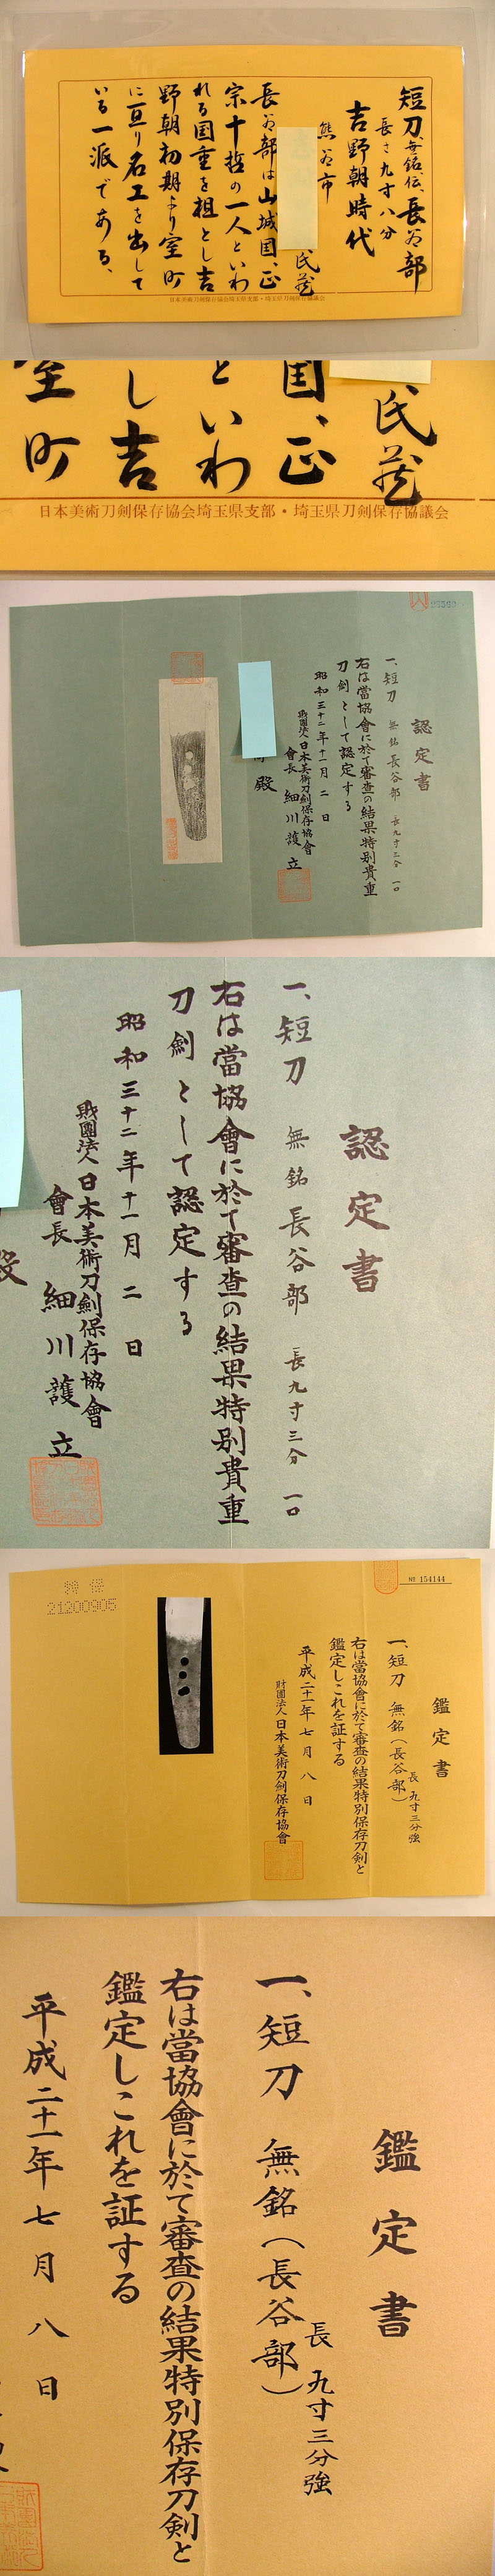 短刀、無銘、伝、長谷部
長さ九寸八分
吉野朝時代
熊谷市
氏蔵
長谷部は山城国、正
宗十哲の一人といわ
れる国重を祖とし吉
野朝初期より室町
に亘り名工を出して
いる一派である、
日本美術刀剣保存協会埼玉県支部・埼玉県刀剣保存協議会
氏蔵
国、正
といわ
し吉
室町
日本美術刀剣保存協会埼玉県支部・埼玉県刀剣保存協議会
認定書
一、短刀 無銘 長谷部 長九寸三分 一口
右は當協會に於て審査の結果特別貴重
刀剣として認定する
昭和三十二年十一月二日
財團法人日本美術刀劍保存協會
會長 細川護立
殿
認定書
一、短刀 無銘 長谷部 長九寸三分 一口
右は當協會に於て審査の結果特別貴重
刀劍として認定する
昭和三十二年十一月二日
財團法人日本美術刀劍保存協會
會長 細川護立
殿
特保
21200905
№ 154144
鑑定書
一、短刀 無銘(長谷部)
長 九寸三分強
右は當協會に於て審査の結果特別保存刀剣と
鑑定しこれを証する
平成二十一年七月八日
財團法人日本美術刀劍保存協會
鑑定書
一、短刀 無銘(長谷部)
長 九寸三分強
右は當協會に於て審査の結果特別保存刀剣と
鑑定しこれを証する
平成二十一年七月八日